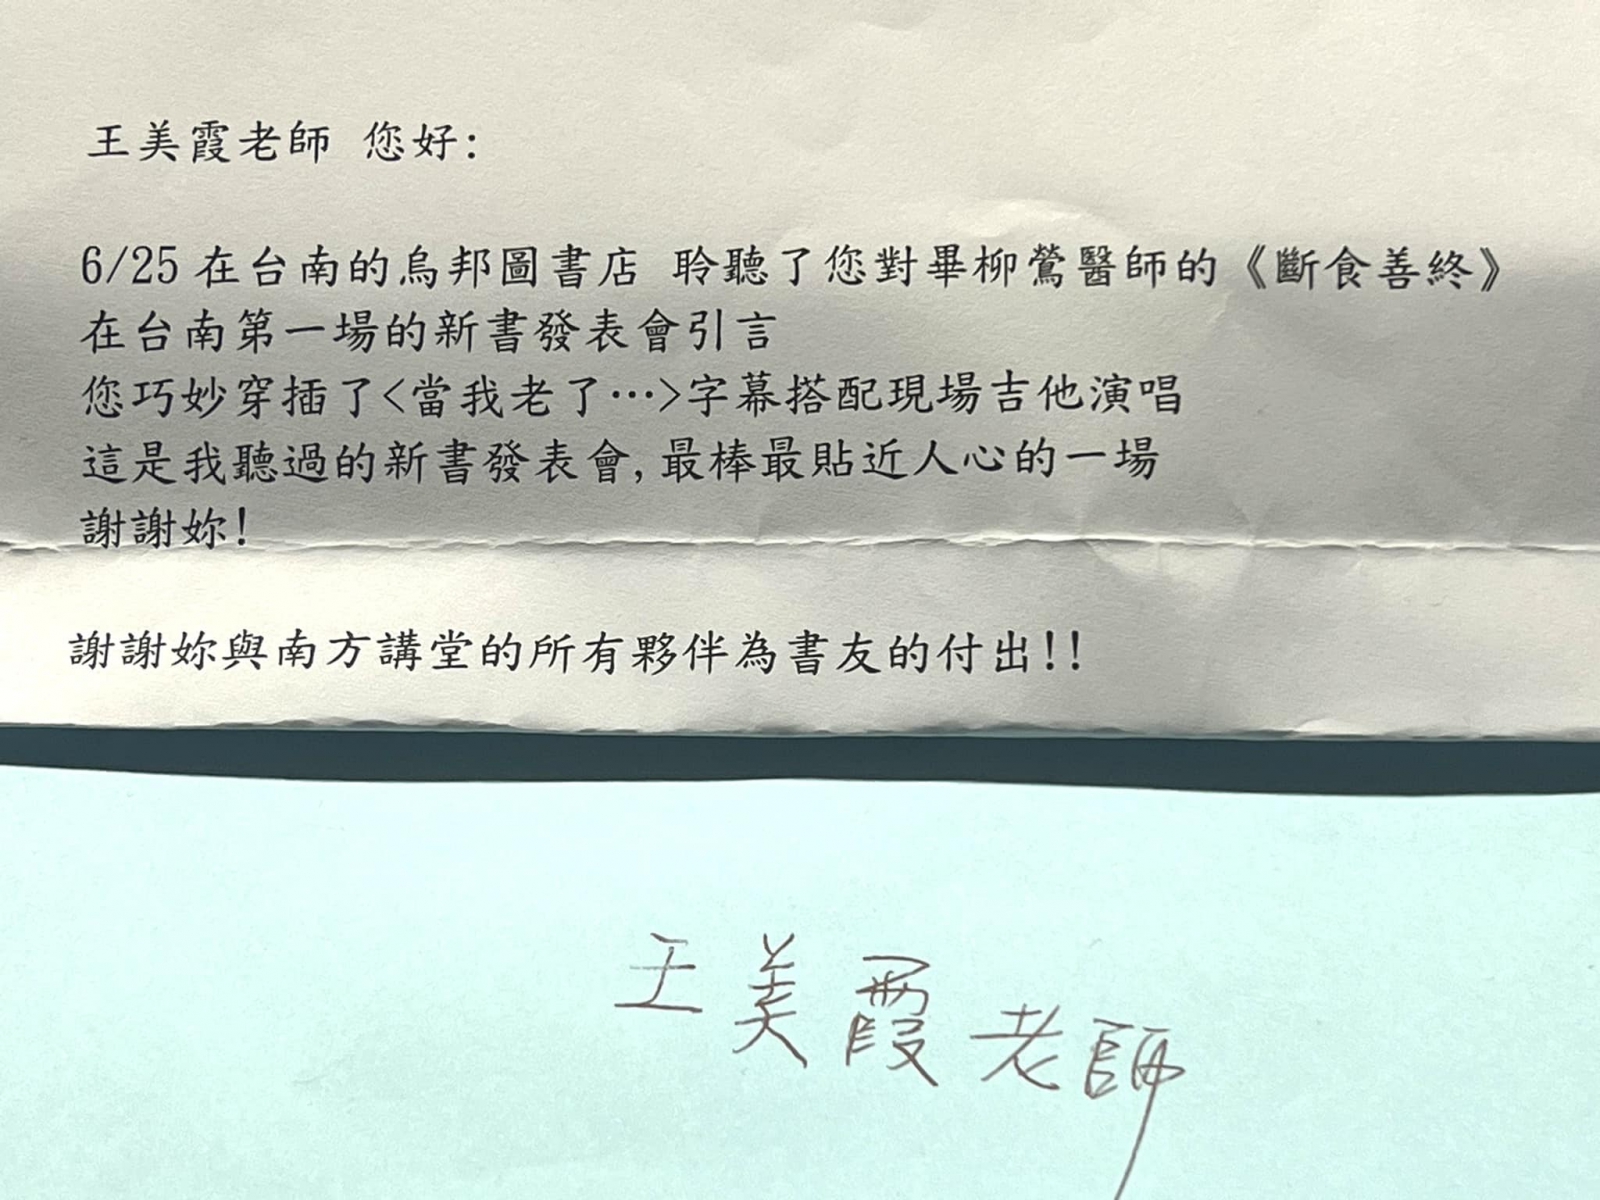 王美霞老師 您好:
6/25 在台南的烏邦圖書店 聆聽了您對畢柳鶯醫師的《斷食善終》
在台南第一場的新書發表會引言
您巧妙穿插了<當我老了…>字幕搭配現場吉他演唱
這是我聽過的新書發表會,最棒最貼近人心的一場
謝謝妳!
謝謝妳與南方講堂的所有夥伴為書友的付出!!
王美霞老師